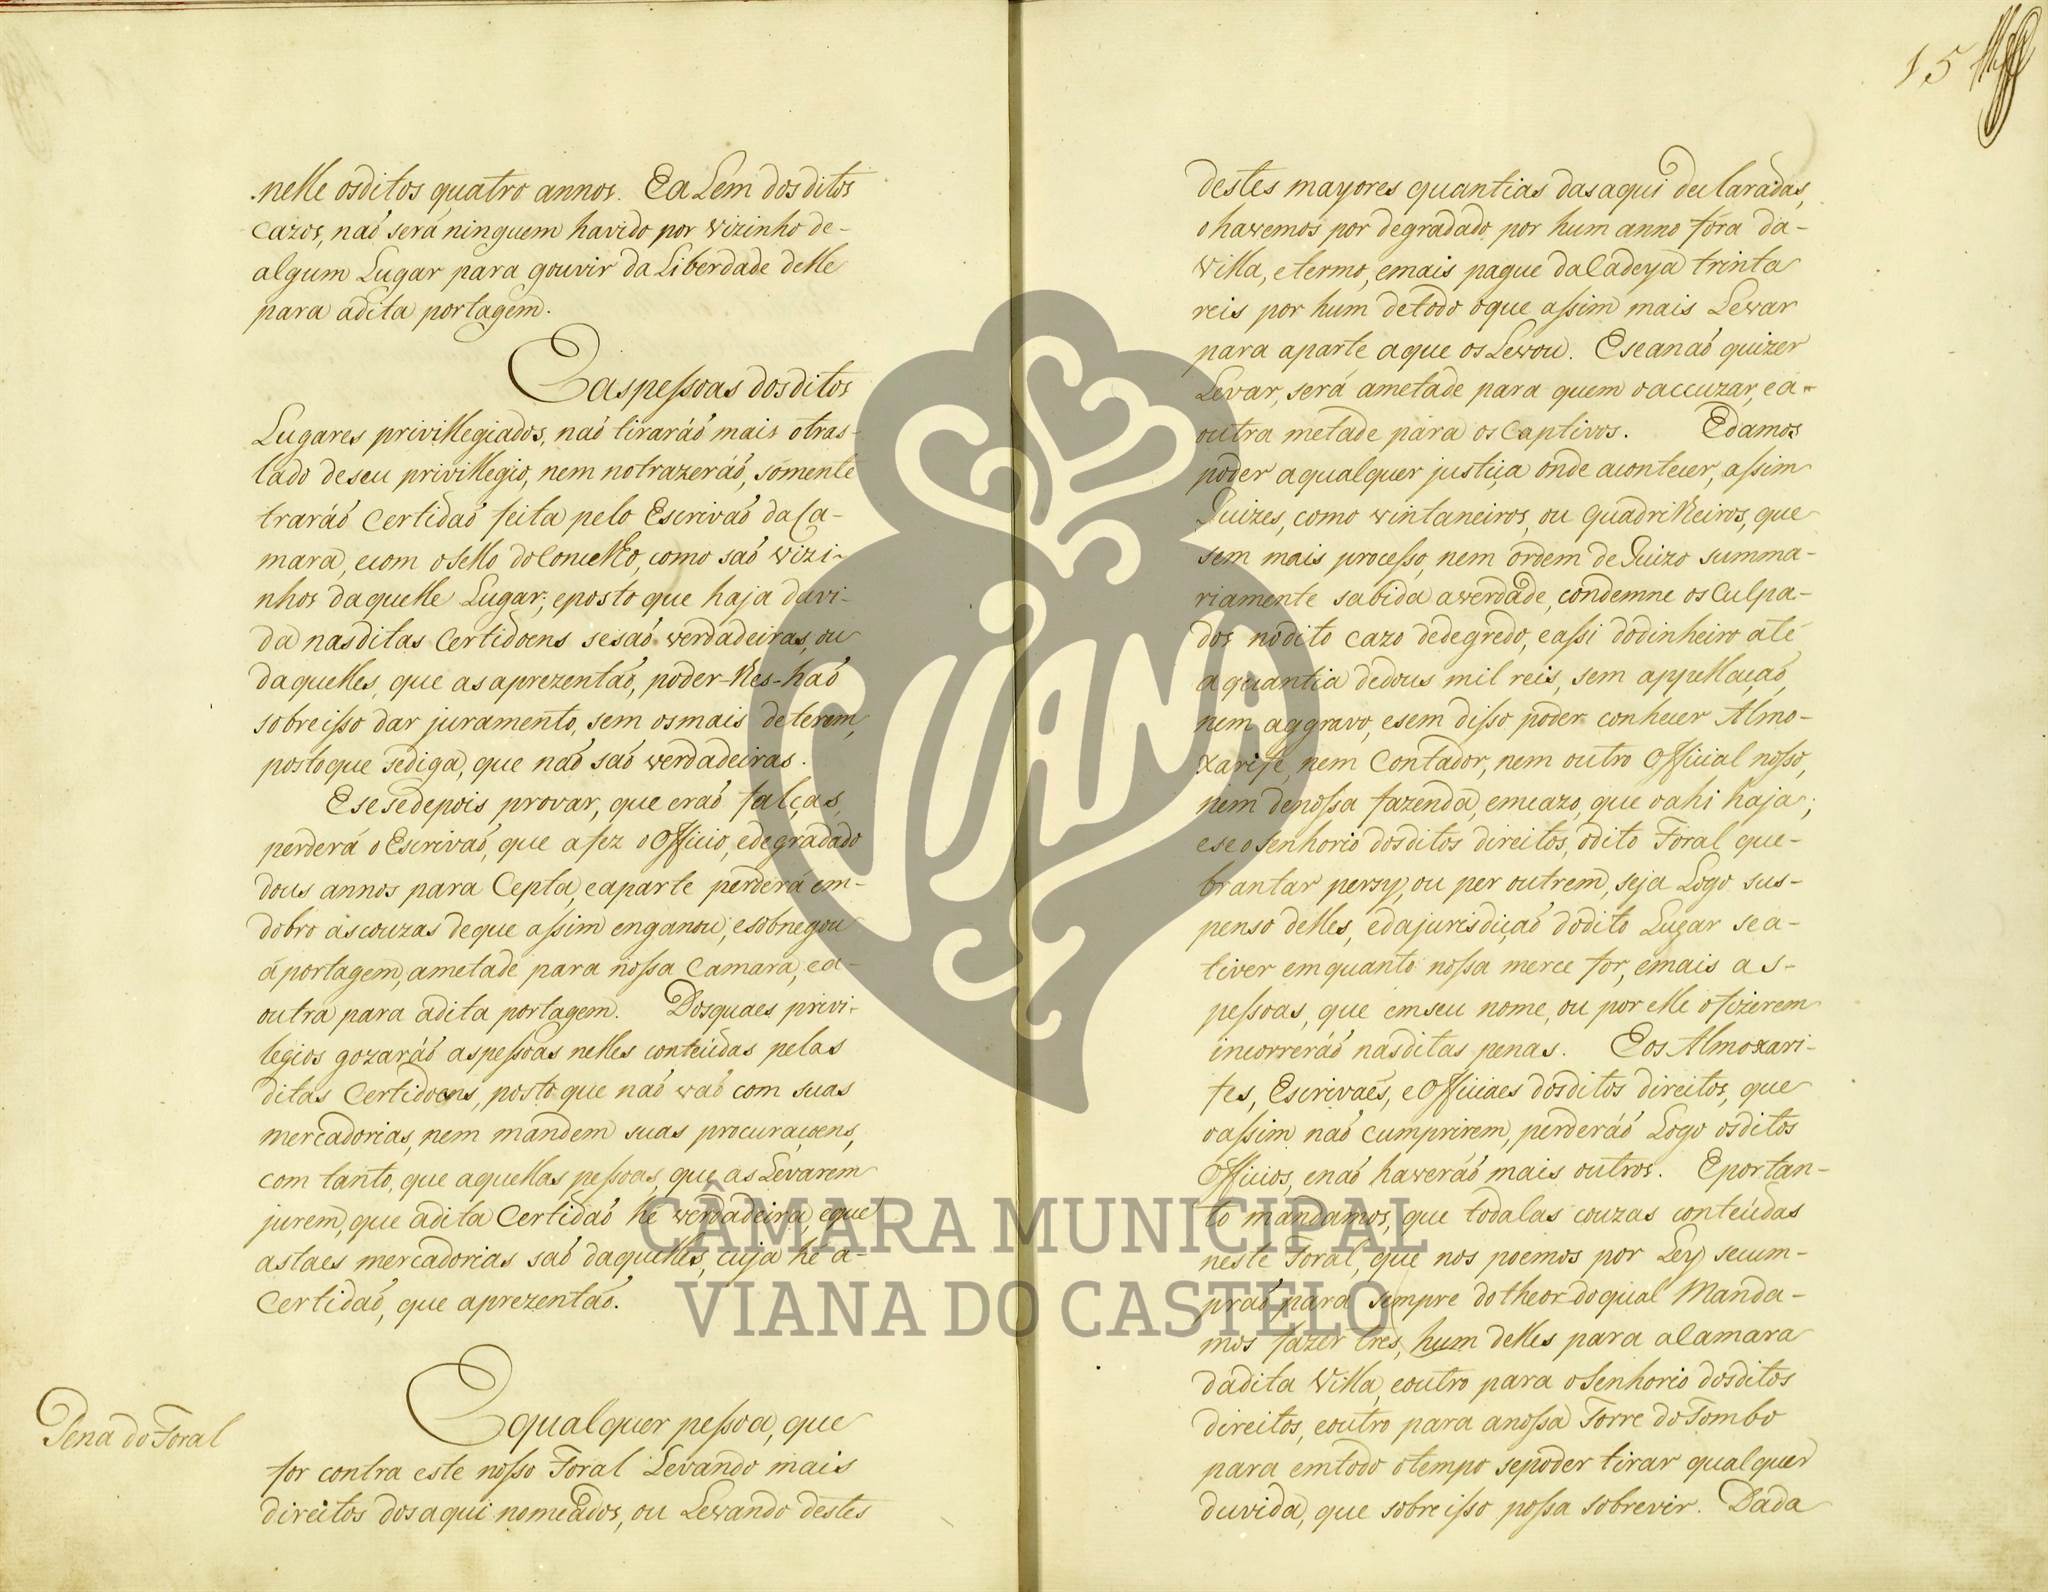 nelle osditos quatro annos. Ealem dosditos
cazos, naõ será ninguem havido por vizinho de-
algum Lugar para gouvir da Liberdade delle
para adita portagem.
Easpessoas dosditos
Lugares privillegiados, naõ tiraráõ mais otras-
lado deseu privillegio, nem notrazeráõ, sómente
traráõ Certidaõ feita pelo Escrivaõ daCa-
mara, ecom osello doConcelho, como saõ vizi-
nhos daquelle Lugar; eposto que haja duvi-
da nasditas Certidoens sesaõ verdadeiras, ou
daquelles, que asaprezentaõ, poder-lhes-haõ
sobreisso dar juramento, sem osmais deterem,
postoque sediga, que naõ saõ verdadeiras.
Esesedepois provar, que eraõ falças,
perderá oEscrivaõ, que afez oOfficio, edegradado
dous annos para Cepta, eaparte perderá em-
dobro ascouzas deque assim enganou, esobnegou
áportagem, ametade para nossa Camara, ea-
outra para adita portagem. Dosquaes privi-
legios gozaráõ aspessoas nelles conteúdas pelas
ditas Certidoens, posto que naõ vaõ com suas
mercadorias, nem mandem suas procuraçoens,
com tanto, que aquellas pessoas, que as Levarem
jurem, que adita Certidaõ hé verdadeira, eque
astaes mercadorias saõ daquelles, cuja hé a-
Certidaõ, que aprezentaõ.
Pena do Foral
Equalquer pessoa, que
for contra este nosso Foral Levando mais
direitos dosaqui nomeados, ou Levando destes
15
destes mayores quantias dasaqui declaradas,
ohavemos por degradado por hum anno fóra da-
Villa, etermo, emais pague daCadeya trinta
reis por hum detodo oque assim mais Levar
para aparte aque osLevou. Eseanaõ quizer
Levar, será ametade para quem oaccuzar, ea-
outra metade para osCaptivos. Edamos
poder aqualquer justiça onde acontecer, assim
Juizes, como vintaneiros, ou quadrilheiros, que
sem mais processo, nem ordem deJuizo summa-
riamente sabida averdade, condemne osCulpa-
dos nodito cazo dedegredo, eassi dodinheiro até
aquantia dedous mil reis, sem appellaçaõ,
nem aggravo, esem disso poder conhecer Almo-
xarife, nem Contador, nem outro Official nosso,
nem denossa fazenda, emcazo, que oahi haja;
eseosenhorio dosditos direitos, odito Foral que-
brantar persy, ou per outrem, seja Logo sus-
penso delles, edajurisdiçaõ dodito Lugar sea-
tiver emquanto nossa merce for, emais as-
pessoas, que emseu nome, ou por elle ofizerem
incorreráõ nasditas penas. Eos Almoxari-
fes, Escrivaẽs, eOfficiaes dosditos direitos, que
oassim naõ cumprirem, perderáõ Logo osditos
Officios, enaõ haveráõ mais outros. Eportan-
to mandamos, que todalas couzas conteúdas
neste Foral, que nos poemos por Ley secum-
praõ para sempre dotheor doqual Manda-
mos fazer tres, hum delles para aCamara
dadita Villa, eoutro para oSenhorio dosditos
direitos, eoutro para anossa Torre doTombo
para emtodo otempo sepoder tirar qualquer
duvida, que sobreisso possa sobrevir. Dada
VIANA
CÂMARA MUNICIPAL
VIANA DO CASTELO